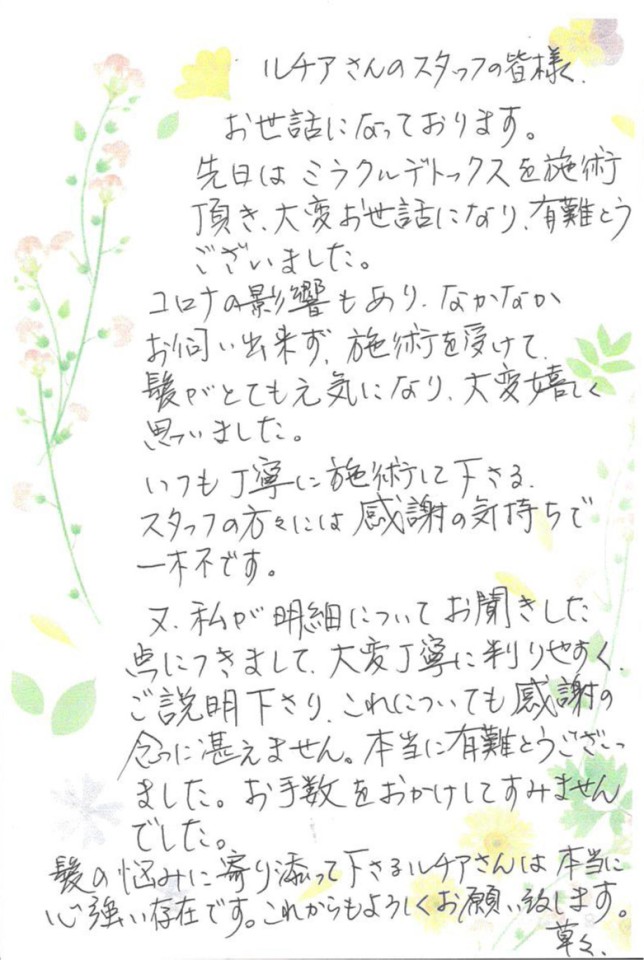 ルチアさんのスタッフの皆様へ
お世話になっております。
先日はミラクルデトックスを施術
頂き、大変お世話になり、有難とう
ございました。
コロナの影響もあり、なかなか
お伺い出来ず、施術を受けて、
髪がとても元気になり、大変嬉しく
思いました。
いつも丁寧に施術して下さる、
スタッフの方々には感謝の気持ちで
一杯です。
又、私が明細についてお聞きした
点につきまして、大変丁寧に判りやすく、
ご説明下さり、これについても感謝の
念に堪えません。本当に有難とうござい
ました。お手数をおかけしてすみません
でした。
髪の悩みに寄り添って下さるルチアさんは本当に
心強い存在です。これからもよろしくお願い致します。
草々、